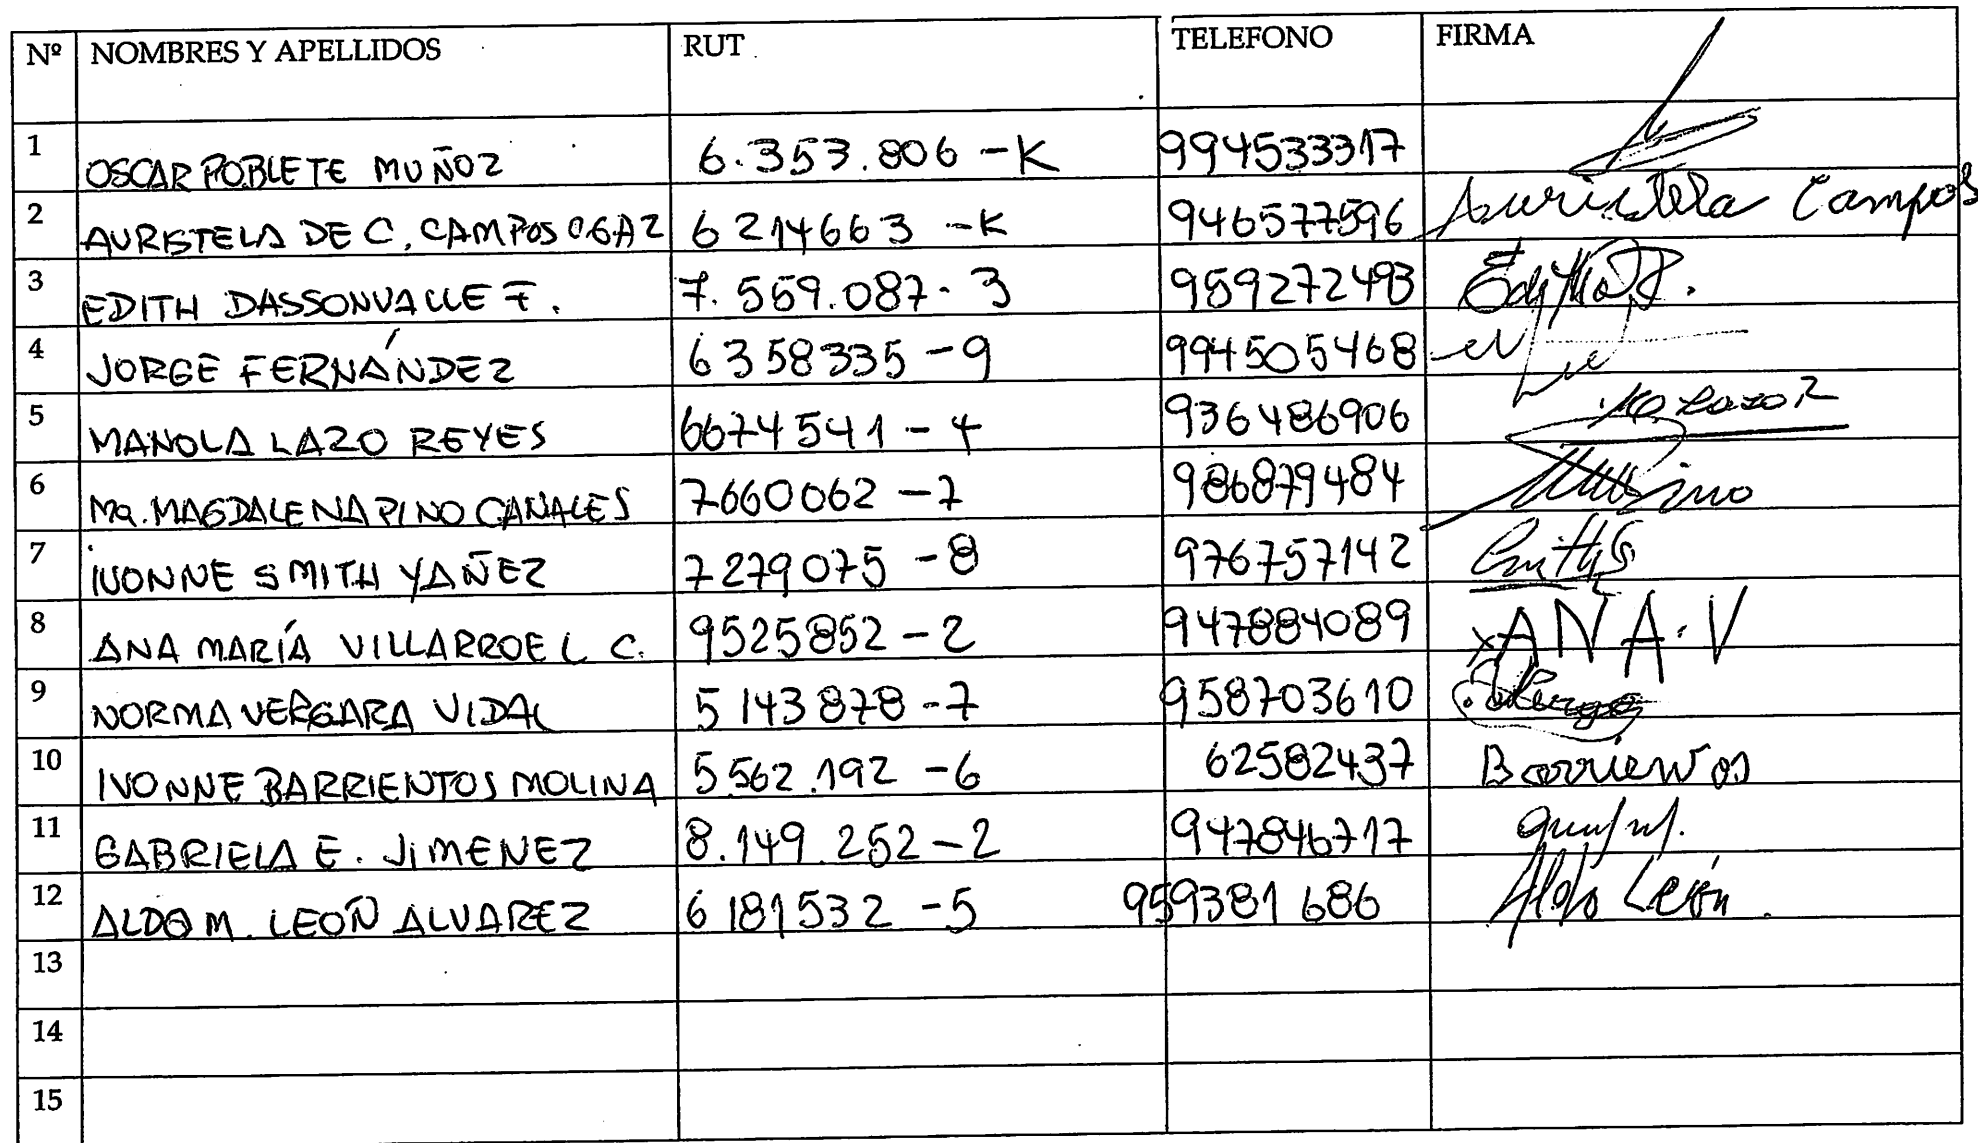 Nº NOMBRES Y APELLIDOS RUT TELEFONO FIRMA
1 OSCAR POBLETE MUÑOZ 6.353.806-K 994533317
2 AURISTELA DE C. CAMPOS OGAZ 6214663-K 946577596 Auristela Campos
3 EDITH DASSONVALLE F. 7.559.087-3 959272493
4 JORGE FERNÁNDEZ 6358335-9 994505468
5 MANOLA LAZO REYES 6674541-4 936486906
6 Ma. MAGDALENA PINO CANALES 7660062-7 986879484
7 IVONNE SMITH YAÑEZ 7279075-8 976757142
8 ANA MARÍA VILLARROEL C. 9525852-2 947884089 ANA.V
9 NORMA VERGARA VIDAL 5143878-7 958703610
10 IVONNE BARRIENTOS MOLINA 5.562.192-6 62582437 Barrientos
11 GABRIELA E. JIMENEZ 8.149.252-2 947846717
12 ALDO M. LEÓN ALVAREZ 6181532-5 959381686 Aldo León.
13
14
15